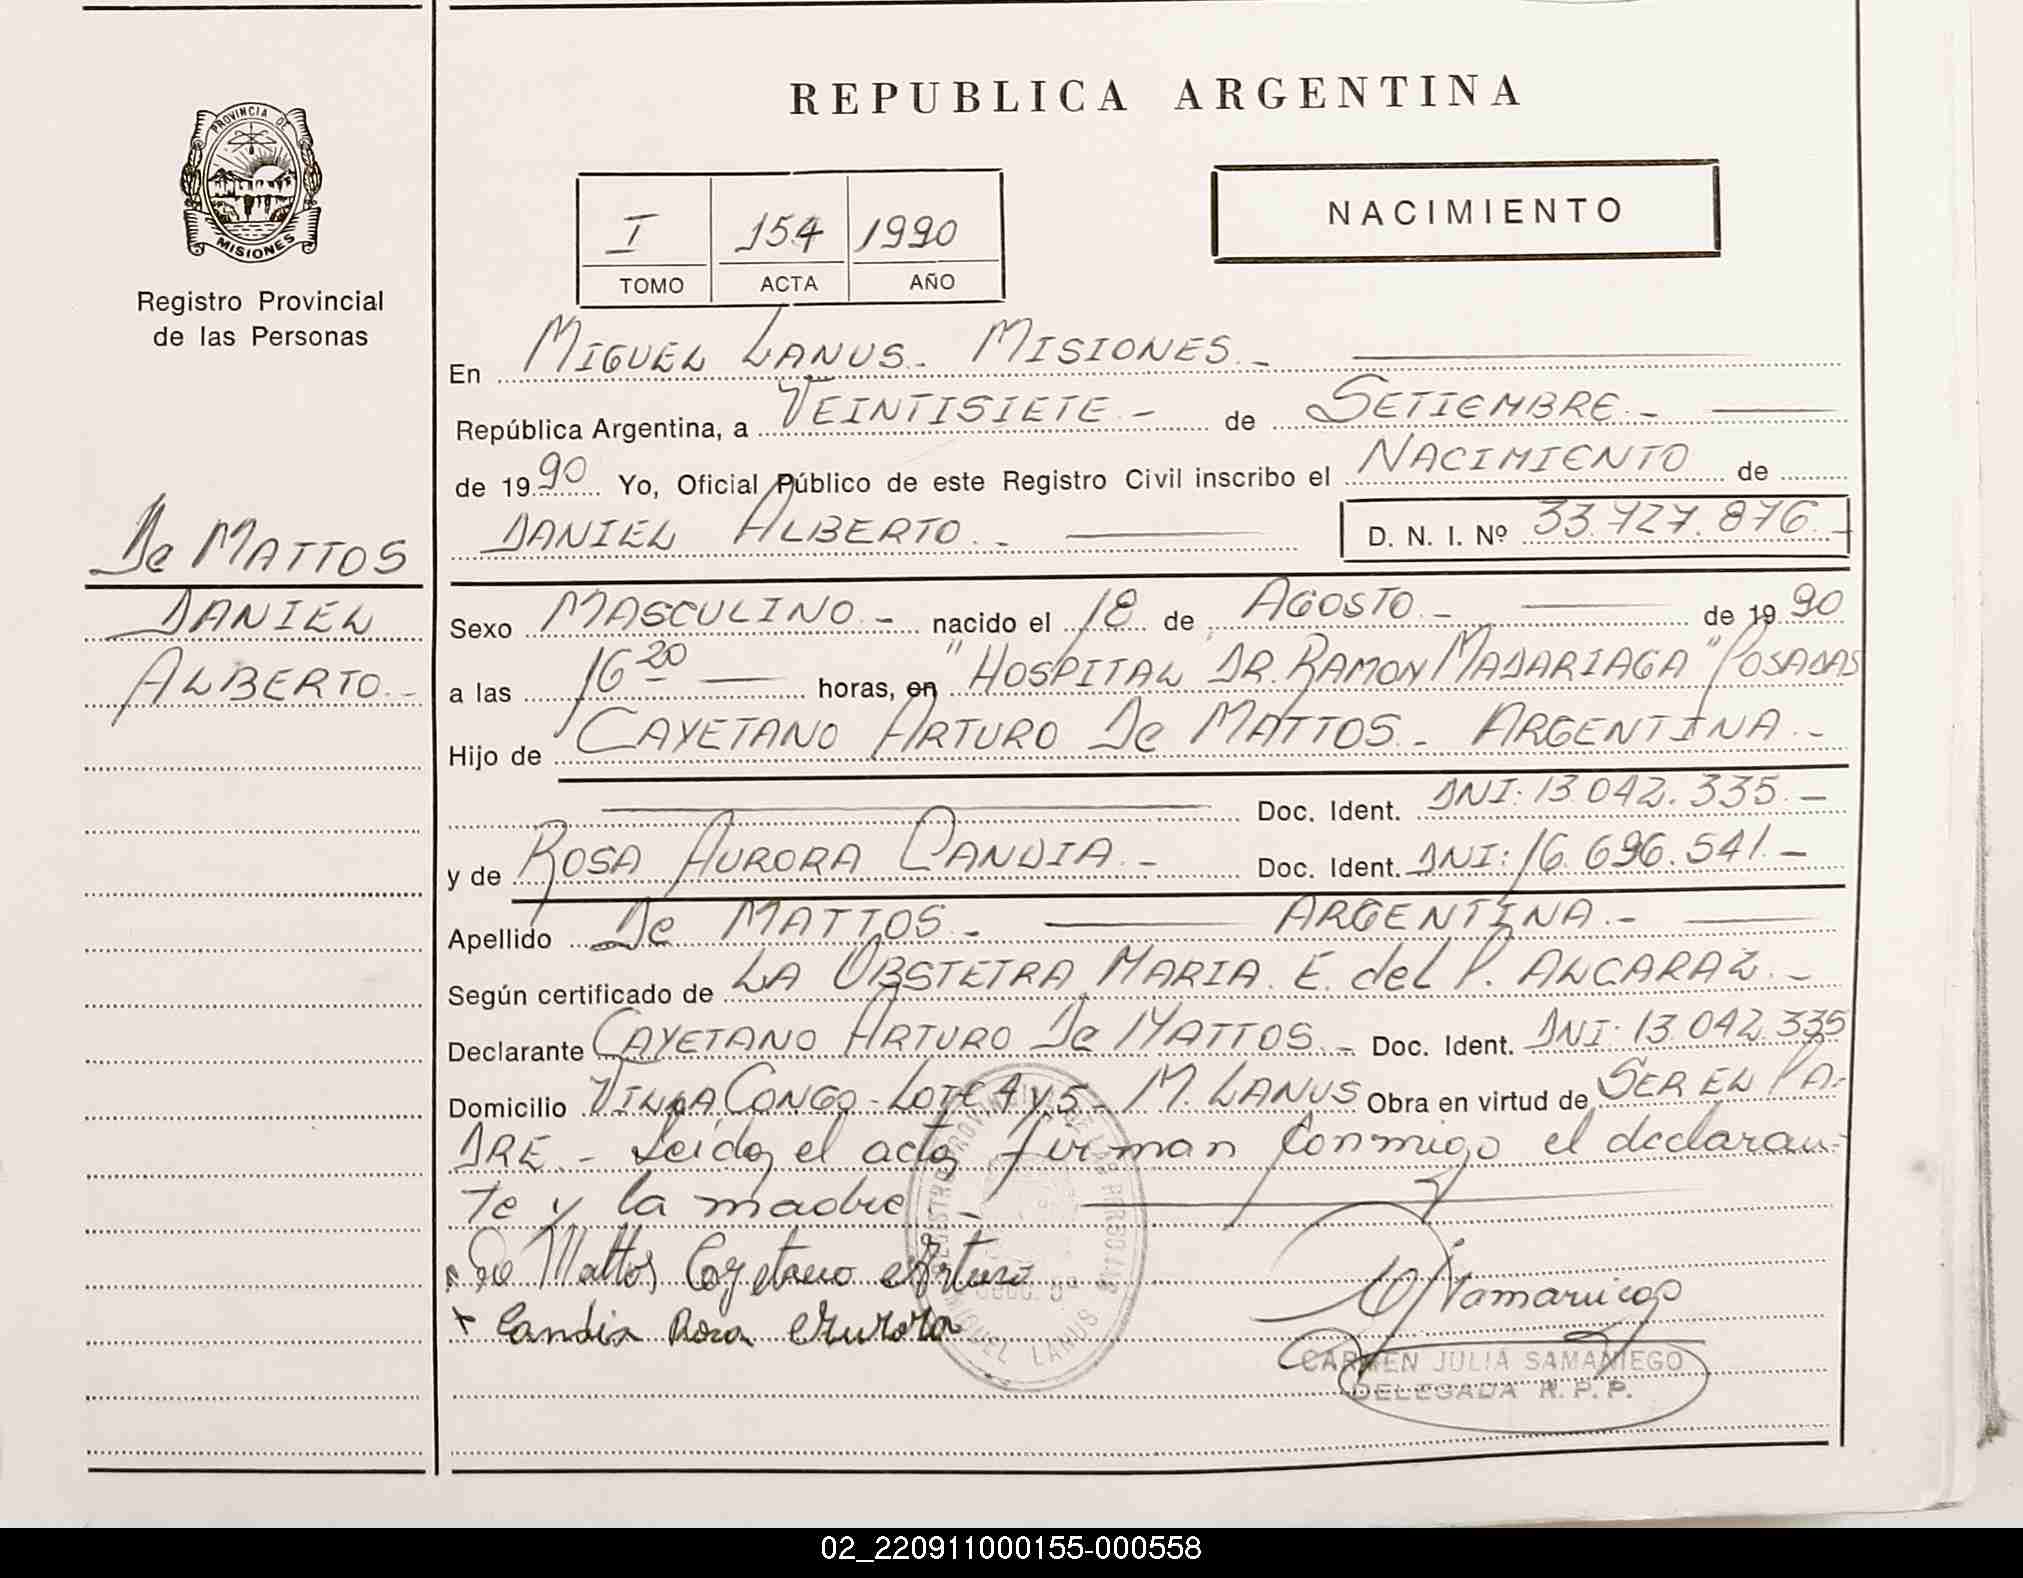 REPUBLICA ARGENTINA
PROVINCIA DE
MISIONES
Registro Provincial
de las Personas
I 154 1990
TOMO ACTA AÑO
NACIMIENTO
En MIGUEL LANUS.- MISIONES.-
República Argentina, a VEINTISIETE.- de SETIEMBRE.-
de 1990 Yo, Oficial Público de este Registro Civil inscribo el NACIMIENTO de
DANIEL ALBERTO.- D. N. I. Nº 33.727.876.-
De MATTOS
DANIEL
ALBERTO.-
Sexo MASCULINO.- nacido el 18 de AGOSTO.- de 1990
a las 16 20 horas, en "HOSPITAL DR. RAMON MADARIAGA" POSADAS
Hijo de CAYETANO ARTURO De MATTOS.- ARGENTINA.-
Doc. Ident. DNI: 13.042.335.-
y de ROSA AURORA CANDIA.- Doc. Ident. DNI: 16.696.541.-
Apellido De MATTOS.- ARGENTINA.-
Según certificado de LA OBSTETRA MARIA. E. del P. ALCARAZ.-
Declarante CAYETANO ARTURO De MATTOS.- Doc. Ident. DNI: 13.042.335
Domicilio VILLA CONGO - LOTE 4 y 5 - M. LANUS Obra en virtud de SER EL PA-
DRE.- Leida el acta firman conmigo el declaran-
te y la madre.-
De Mattos Cayetano Arturo
x Candia Rosa Aurora
REGISTRO PROVINCIAL DE LAS PERSONAS
MIGUEL LANUS
CARMEN JULIA SAMANIEGO
DELEGADA R. P. P.
02_220911000155-000558